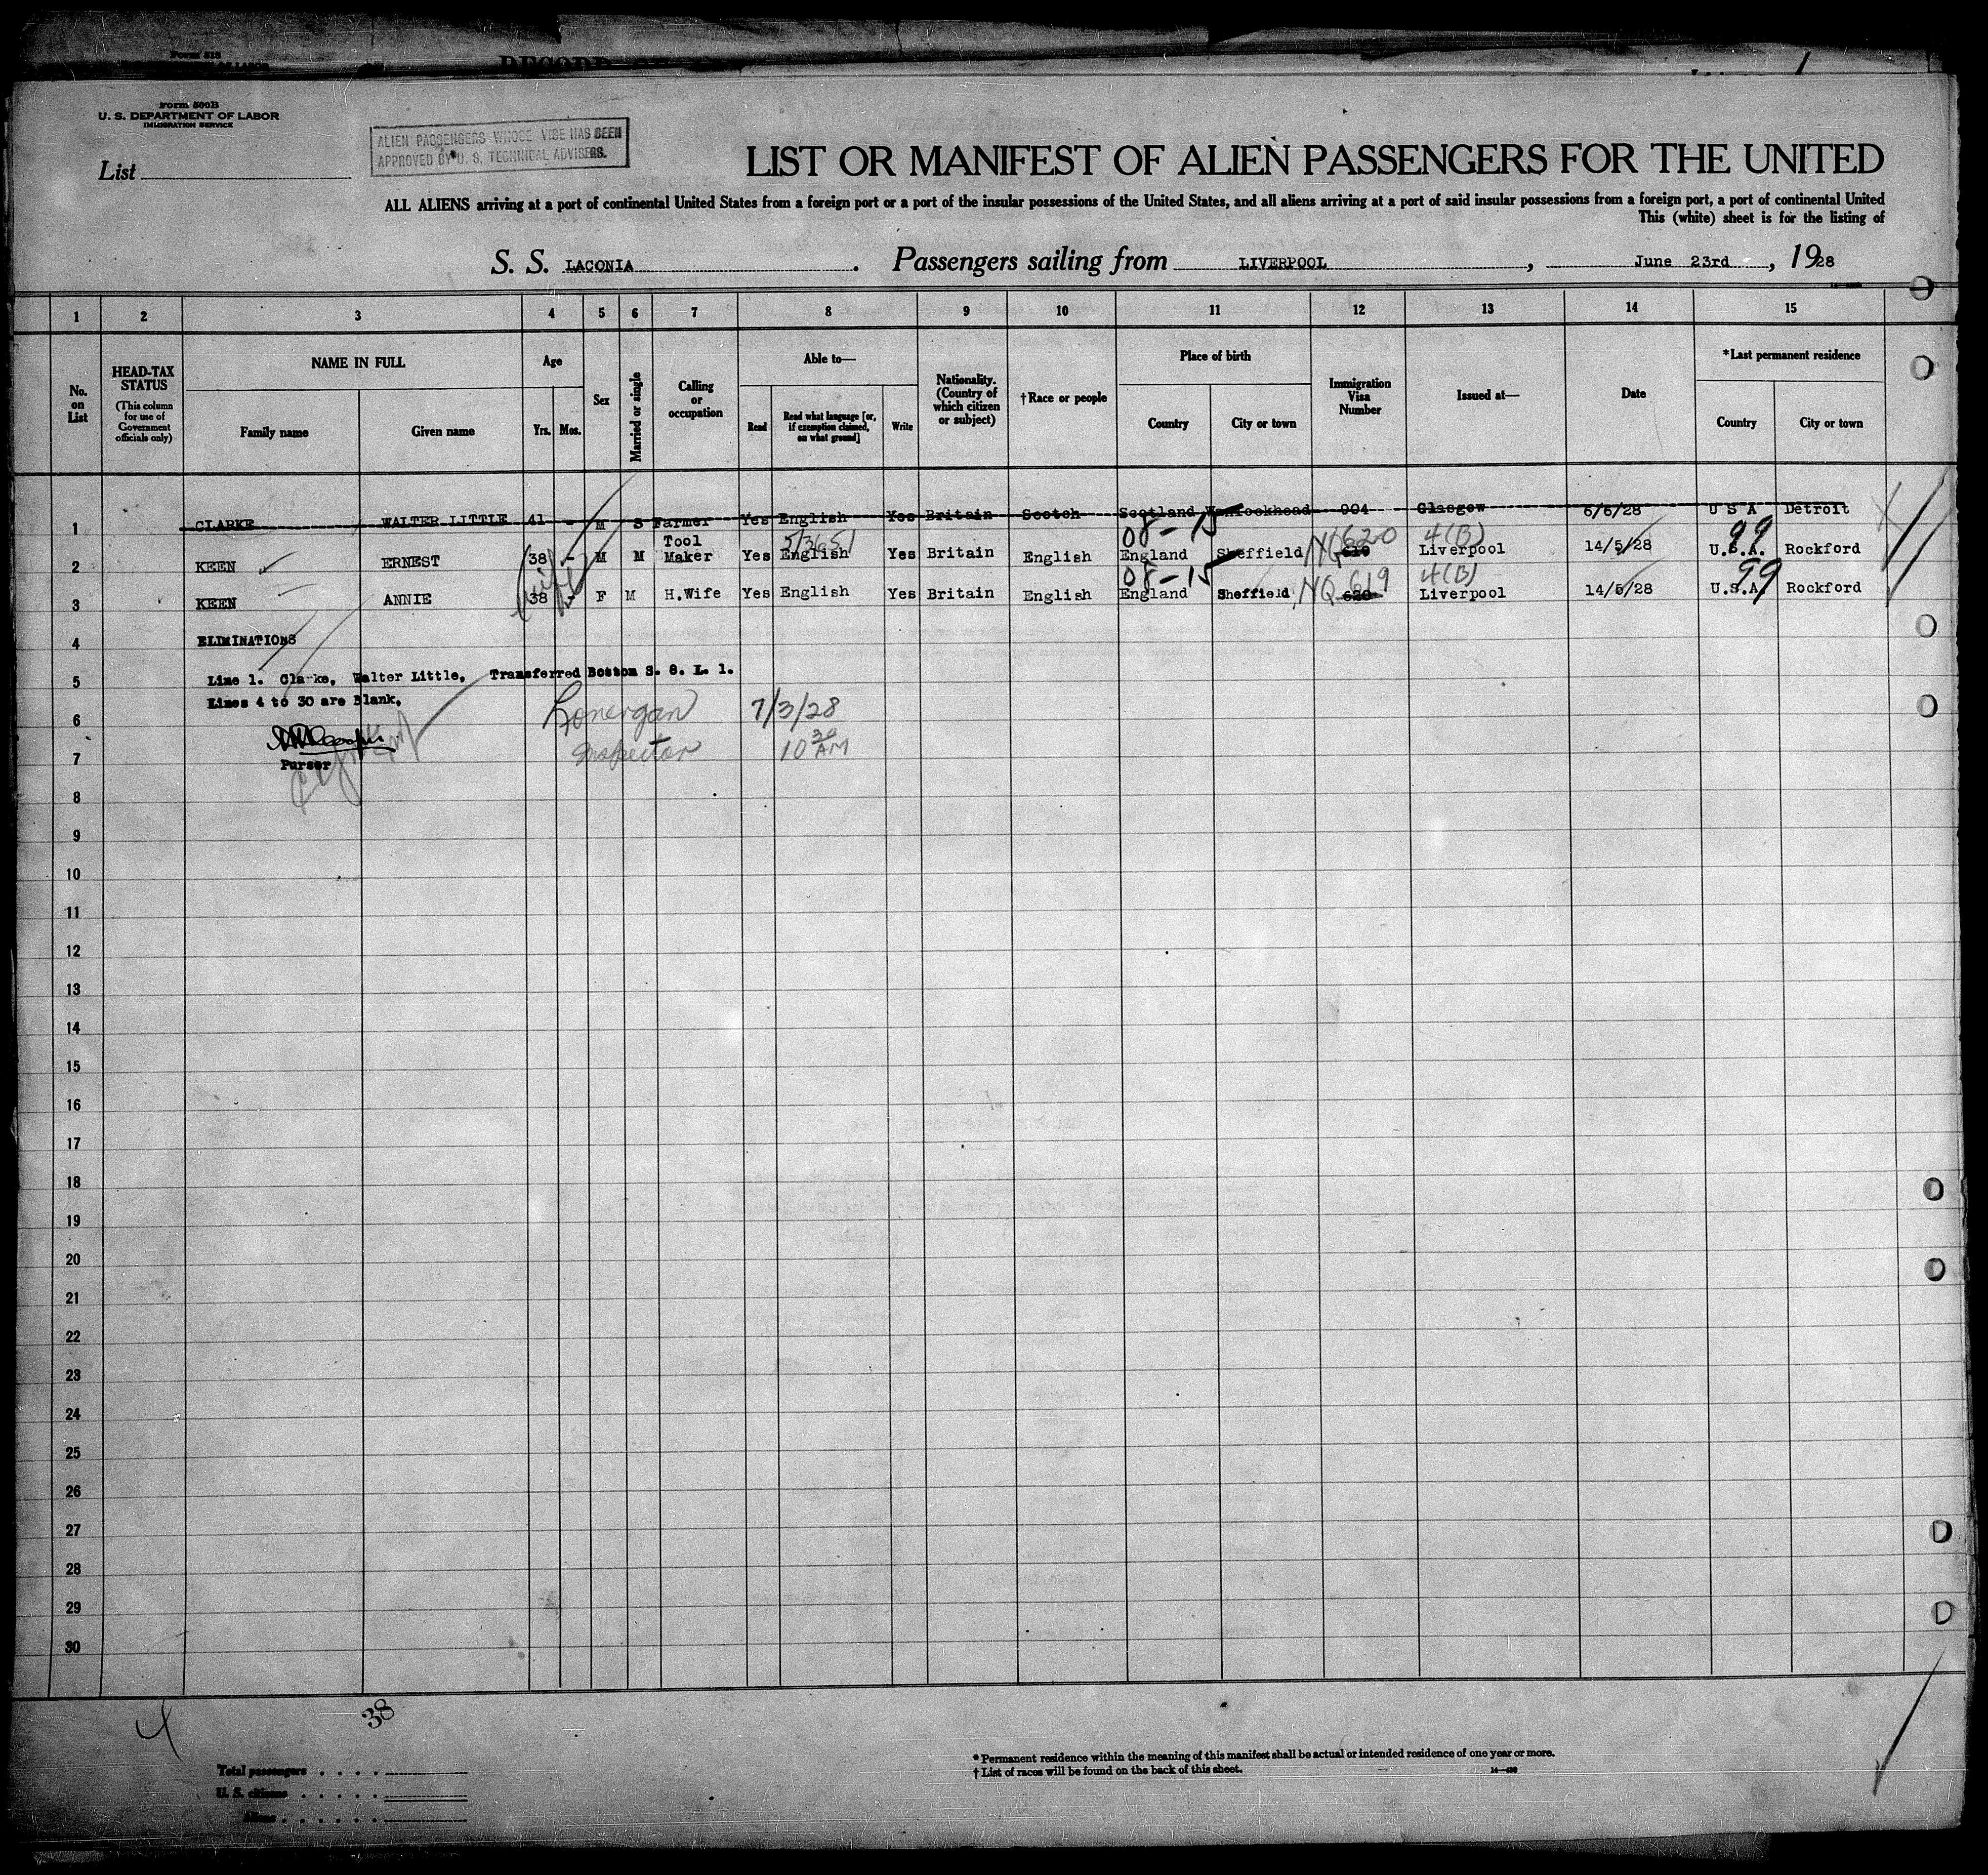 Form 500B
U. S. DEPARTMENT OF LABOR
IMMIGRATION SERVICE
ALIEN PASSENGERS WHOSE VISE HAS BEEN
APPROVED BY U. S. TECHNICAL ADVISERS.
List
LIST OR MANIFEST OF ALIEN PASSENGERS FOR THE UNITED
ALL ALIENS arriving at a port of continental United States from a foreign port or a port of the insular possessions of the United States, and all aliens arriving at a port of said insular possessions from a foreign port, a port of continental United
This (white) sheet is for the listing of
S. S. LACONIA. Passengers sailing from LIVERPOOL, June 23rd, 1928
1 2 3 4 5 6 7 8 9 10 11 12 13 14 15
No. on List
HEAD-TAX STATUS (This column for use of Government officials only)
NAME IN FULL
Family name Given name
Age
Yrs. Mos.
Sex
Married or single
Calling or occupation
Able to—
Read Read what language [or, if exemption claimed, on what ground] Write
Nationality. (Country of which citizen or subject)
†Race or people
Place of birth
Country City or town
Immigration Visa Number
Issued at—
Date
*Last permanent residence
Country City or town
1 CLARKE WALTER LITTLE 41 - M S Farmer Yes English Yes Britain Scotch Scotland Wanlockhead 904 Glasgow 6/6/28 U S A Detroit
08-15 NQ 620 4(B) 99
2 KEEN ERNEST 38 - M M Tool Maker Yes English Yes Britain English England Sheffield 619 Liverpool 14/5/28 U.S.A. Rockford
08-15 NQ 619 4(B) 99
3 KEEN ANNIE 38 - F M H.Wife Yes English Yes Britain English England Sheffield 620 Liverpool 14/5/28 U.S.A. Rockford
4 ELIMINATIONS
5 Line 1. Clarke, Walter Little, Transferred Boston S. 8. L. 1.
Lines 4 to 30 are Blank.
6 Lonergan 7/3/28
7 Purser Inspector 10 30 AM
8
9
10
11
12
13
14
15
16
17
18
19
20
21
22
23
24
25
26
27
28
29
30
38
Total passengers
U. S. citizens
Aliens
* Permanent residence within the meaning of this manifest shall be actual or intended residence of one year or more.
† List of races will be found on the back of this sheet.